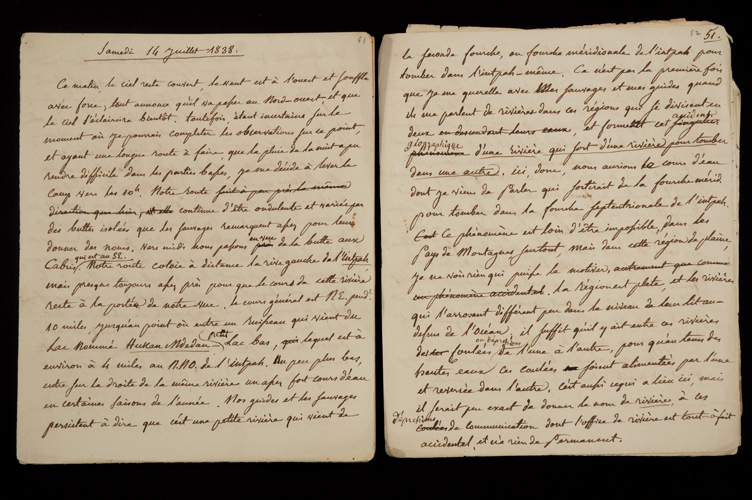 51
Samedi 14 Juillet 1838.
Ce matin, le ciel reste couvert, le vent est à l'ouest et souffle
avec force; tout annonce qu'il va passer au Nord-ouest, et que
le ciel s'éclaircira bientôt. Toutefois, étant incertains sur le
moment où je pourrais completer les observations sur ce point,
et ayant une longue route à faire, que la pluie de la nuit a pu
rendre difficile dans les parties basses, je me décide à lever le
Camp vers les 10h. Notre route fait à peu près la même
direction que hier, et elle continue d'être ondulente et variée par
des buttes isolées que les sauvages remarquent assez pour leur
donner des noms. Vers midi nous passons en vue de la butte aux
Cabris, qui est au SE. Notre route cotoie à distance la rive gauche de l'intpah
mais presque toujours assez près pour que le cours de cette rivière
reste à la portée de notre vue. Le cours général est N.E, pendt
10 miles, jusqu'au point où entre un ruisseau qui vient du
Lac nommé Hukan Mdadan petit Lac bas, lequel est à
environ à 4 miles au NNO. de l'intpah. Un peu plus bas,
entre sur la droite de la même rivière un assez fort cours d'eau
en certaines saisons de l'année. Nos guides et les sauvages
persistent à dire que c'est une petite rivière qui vient de
52 51.
la seconde fourche, ou fourche méridionale de l'intpah pour
tomber dans l'intpah-même. Ce n'est pas la première fois
que je me querelle avec les sauvages et mes guides quand
ils me parlent de rivières dans ces régions qui se divisent en
deux en descendant leurs eaux, et forment cet singulier accident
phénomène géographique d'une rivière qui sort d'une rivière pour tomber
dans une autre; ici, donc, nous aurions le cours d'eau
dont je viens de parler qui sortirait de la fourche mérid.
pour tomber dans la fourche septentrionale de l'intpah.
Ce phénomène est loin d'être impossible, dans les
Pays de Montagnes surtout mais dans cette région de plaine
je ne vois rien qui puisse le motiver, autrement que comme
un phénomène accidentel. La région est plate, et les rivières
qui l'arrosent différent peu dans le niveau de leur lit au-
dessus de l'Océan; il suffit qu'il y ait entre ces rivières
des Coulées ou dépressions de l'une à l'autre, pour qu'au tems des
hautes eaux ces coulées soient alimentées par l'une
et reversée dans l'autre. C'est aussi ce qui a lieu ici, mais
il serait peu exact de donner le nom de rivière, à ces
dépressions coulées de communication dont l'office de rivière est tout-à-fait
accidentel, et n'a rien de Permanent.